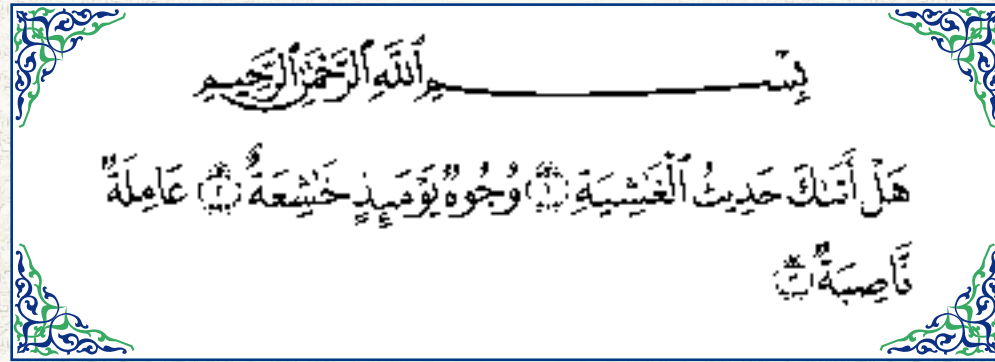 بِسْمِ ٱللَّهِ ٱلرَّحْمَٰنِ ٱلرَّحِيمِ
هَلْ أَتَىٰكَ حَدِيثُ ٱلْغَٰشِيَةِ ١ وُجُوهٌ يَوْمَئِذٍ خَٰشِعَةٌ ٢ عَامِلَةٌ
نَّاصِبَةٌ ٣